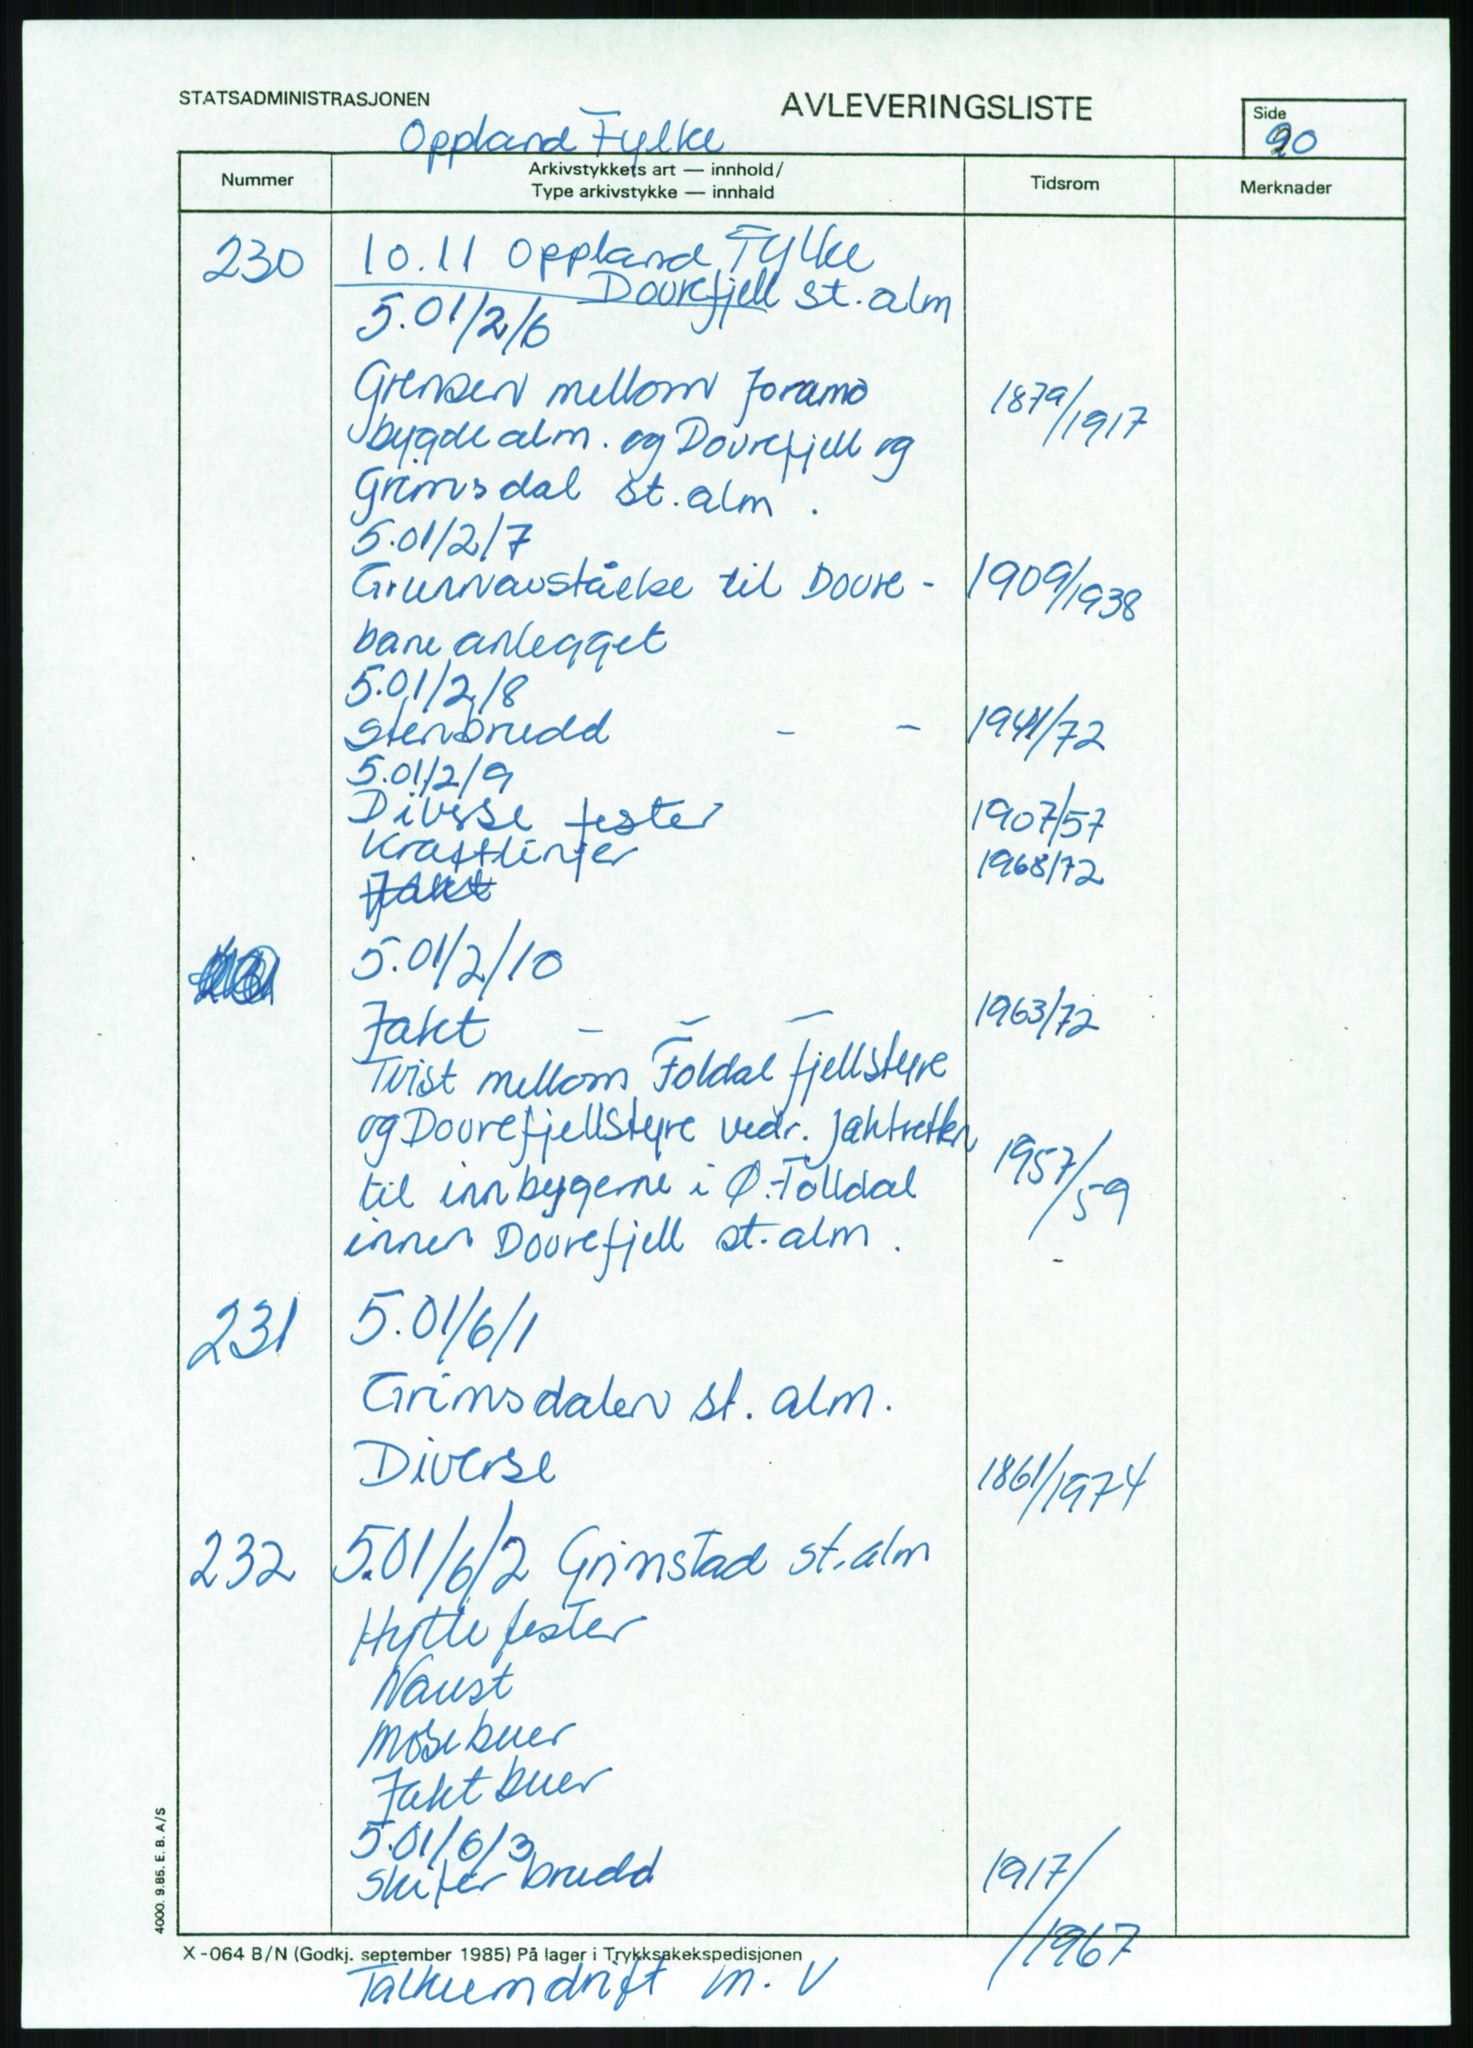 STATSADMINISTRASJONEN
AVLEVERINGSLISTE
Side
20
Oppland Fylke
Nummer
Arkivstykkets art — innhold/
Type arkivstykke — innhald
Tidsrom
Merknader
230 10.11 Oppland Fylke
Dovrefjell st. alm
5.01/2/6
Grensen mellom Joramo 1879/1917
bygdealm. og Dovrefjell og
Grimsdal st. alm.
5.01/2/7
Grunnavståelse til Dovre- 1909/1938
baneanlegget
5.01/2/8
Stenbrudd - - 1941/72
5.01/2/9
Diverse fester 1907/57
Kraftlinjer 1968/72
Jakt
5.01/2/10
Jakt - - - 1963/72
Tvist mellom Foldal fjellstyre
og Dovrefjellstyre vedr. jaktretten
til innbygerne i Ø. Folldal 1957/59
innen Dovrefjell st. alm.
231 5.01/6/1
Grimsdalen st. alm.
Diverse 1861/1974
232 5.01/6/2 Grimstad st. alm
Hyttefester
Naust
Mosebuer
Jaktbuer
5.01/6/3
Skiferbrudd 1917/1967
X-064 B/N (Godkj. september 1985) På lager i Trykksakekspedisjonen
Talkumdrift m. v
4000. 9.85. E. B. A/S